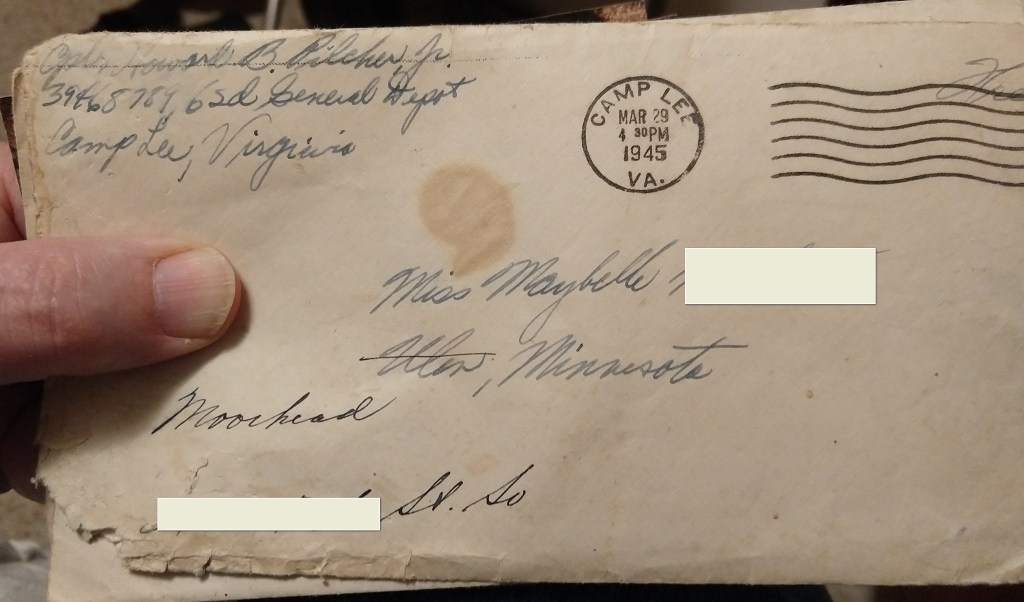 Cpl. Howard B. Pilcher Jr.
39468789, 62d General Depot
Camp Lee, Virginia
CAMP LEE
MAR 29
4 30PM
1945
VA.
Miss Maybelle
Ulen, Minnesota
Moorhead
St. So